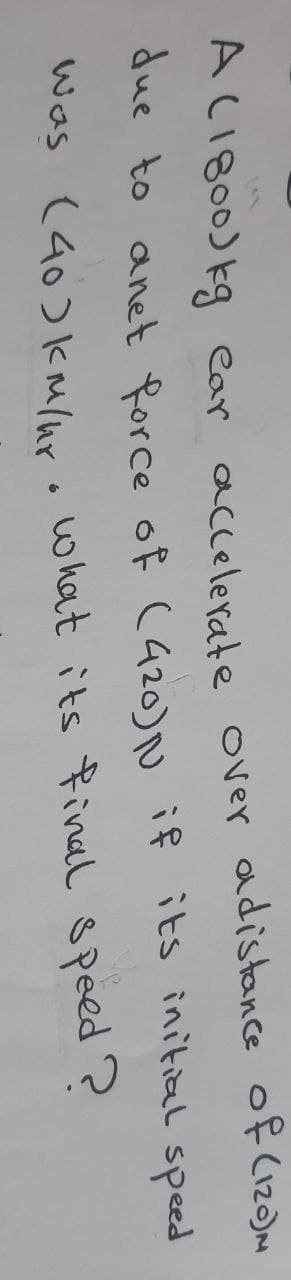 A (1800) kg car accelerate over adistance of (120)M
due to anet force of (420)N if its initial speed
was (40) KM/hr . what its final speed?